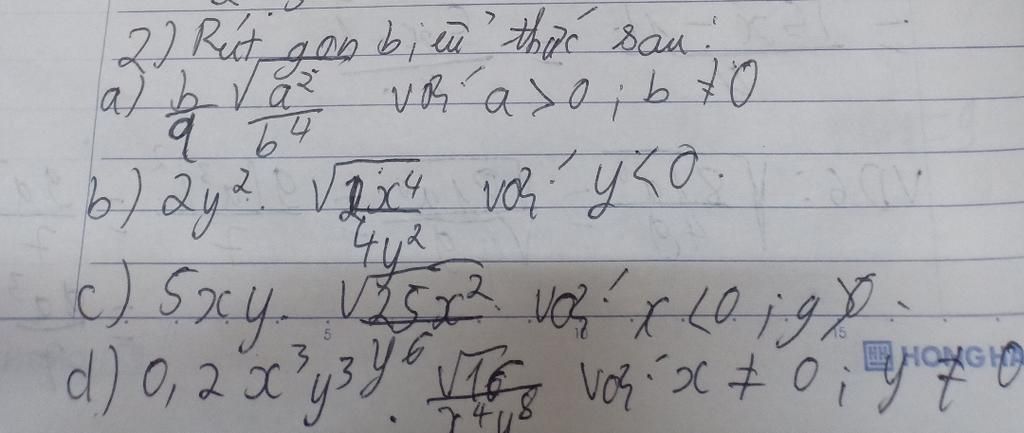 2) Rút gọn biểu thức sau:
a) b/a √(a²/b⁴) với a > 0 ; b ≠ 0
b) 2y² . √(x⁴/4y²) với y < 0.
c) 5xy . √(25x²/y⁶) với x < 0 ; y > 0.
d) 0,2x³y³ . √16/x⁴y⁸ với x ≠ 0 ; y ≠ 0
HONG HA